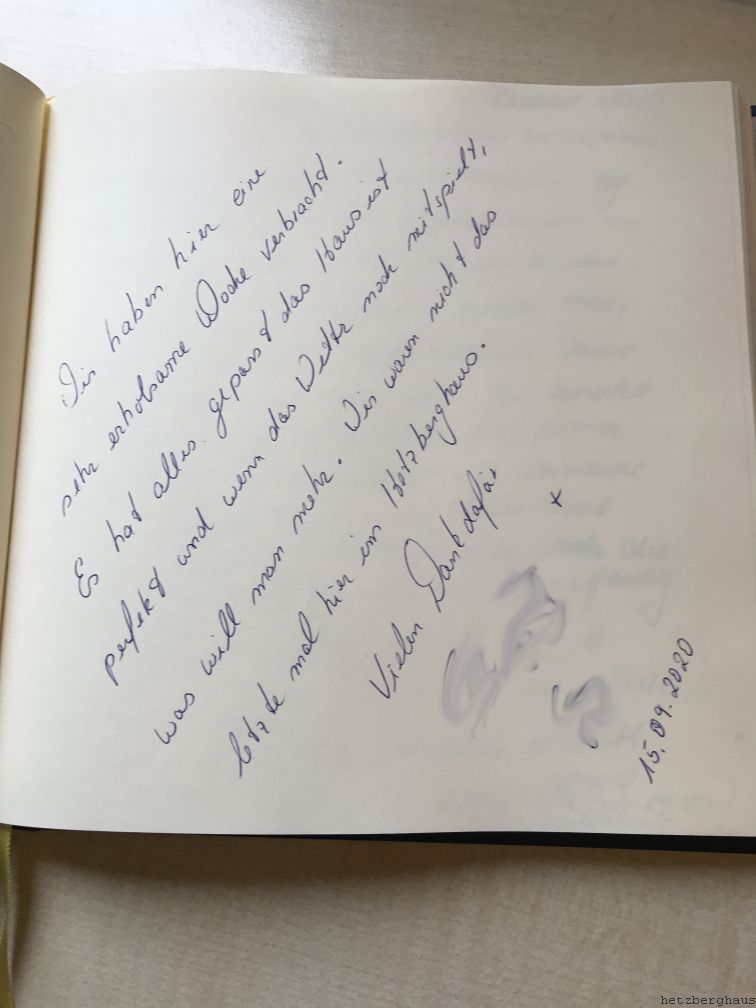 Wir haben hier eine
sehr erholsame Woche verbracht.
Es hat alles gepasst das Haus ist
perfekt und wenn das Wetter noch mitspielt,
was will man mehr. Wir waren nicht das
letzte mal hier im Hetzberghaus.
Vielen Dank dafür
15.09.2020
hetzberghaus